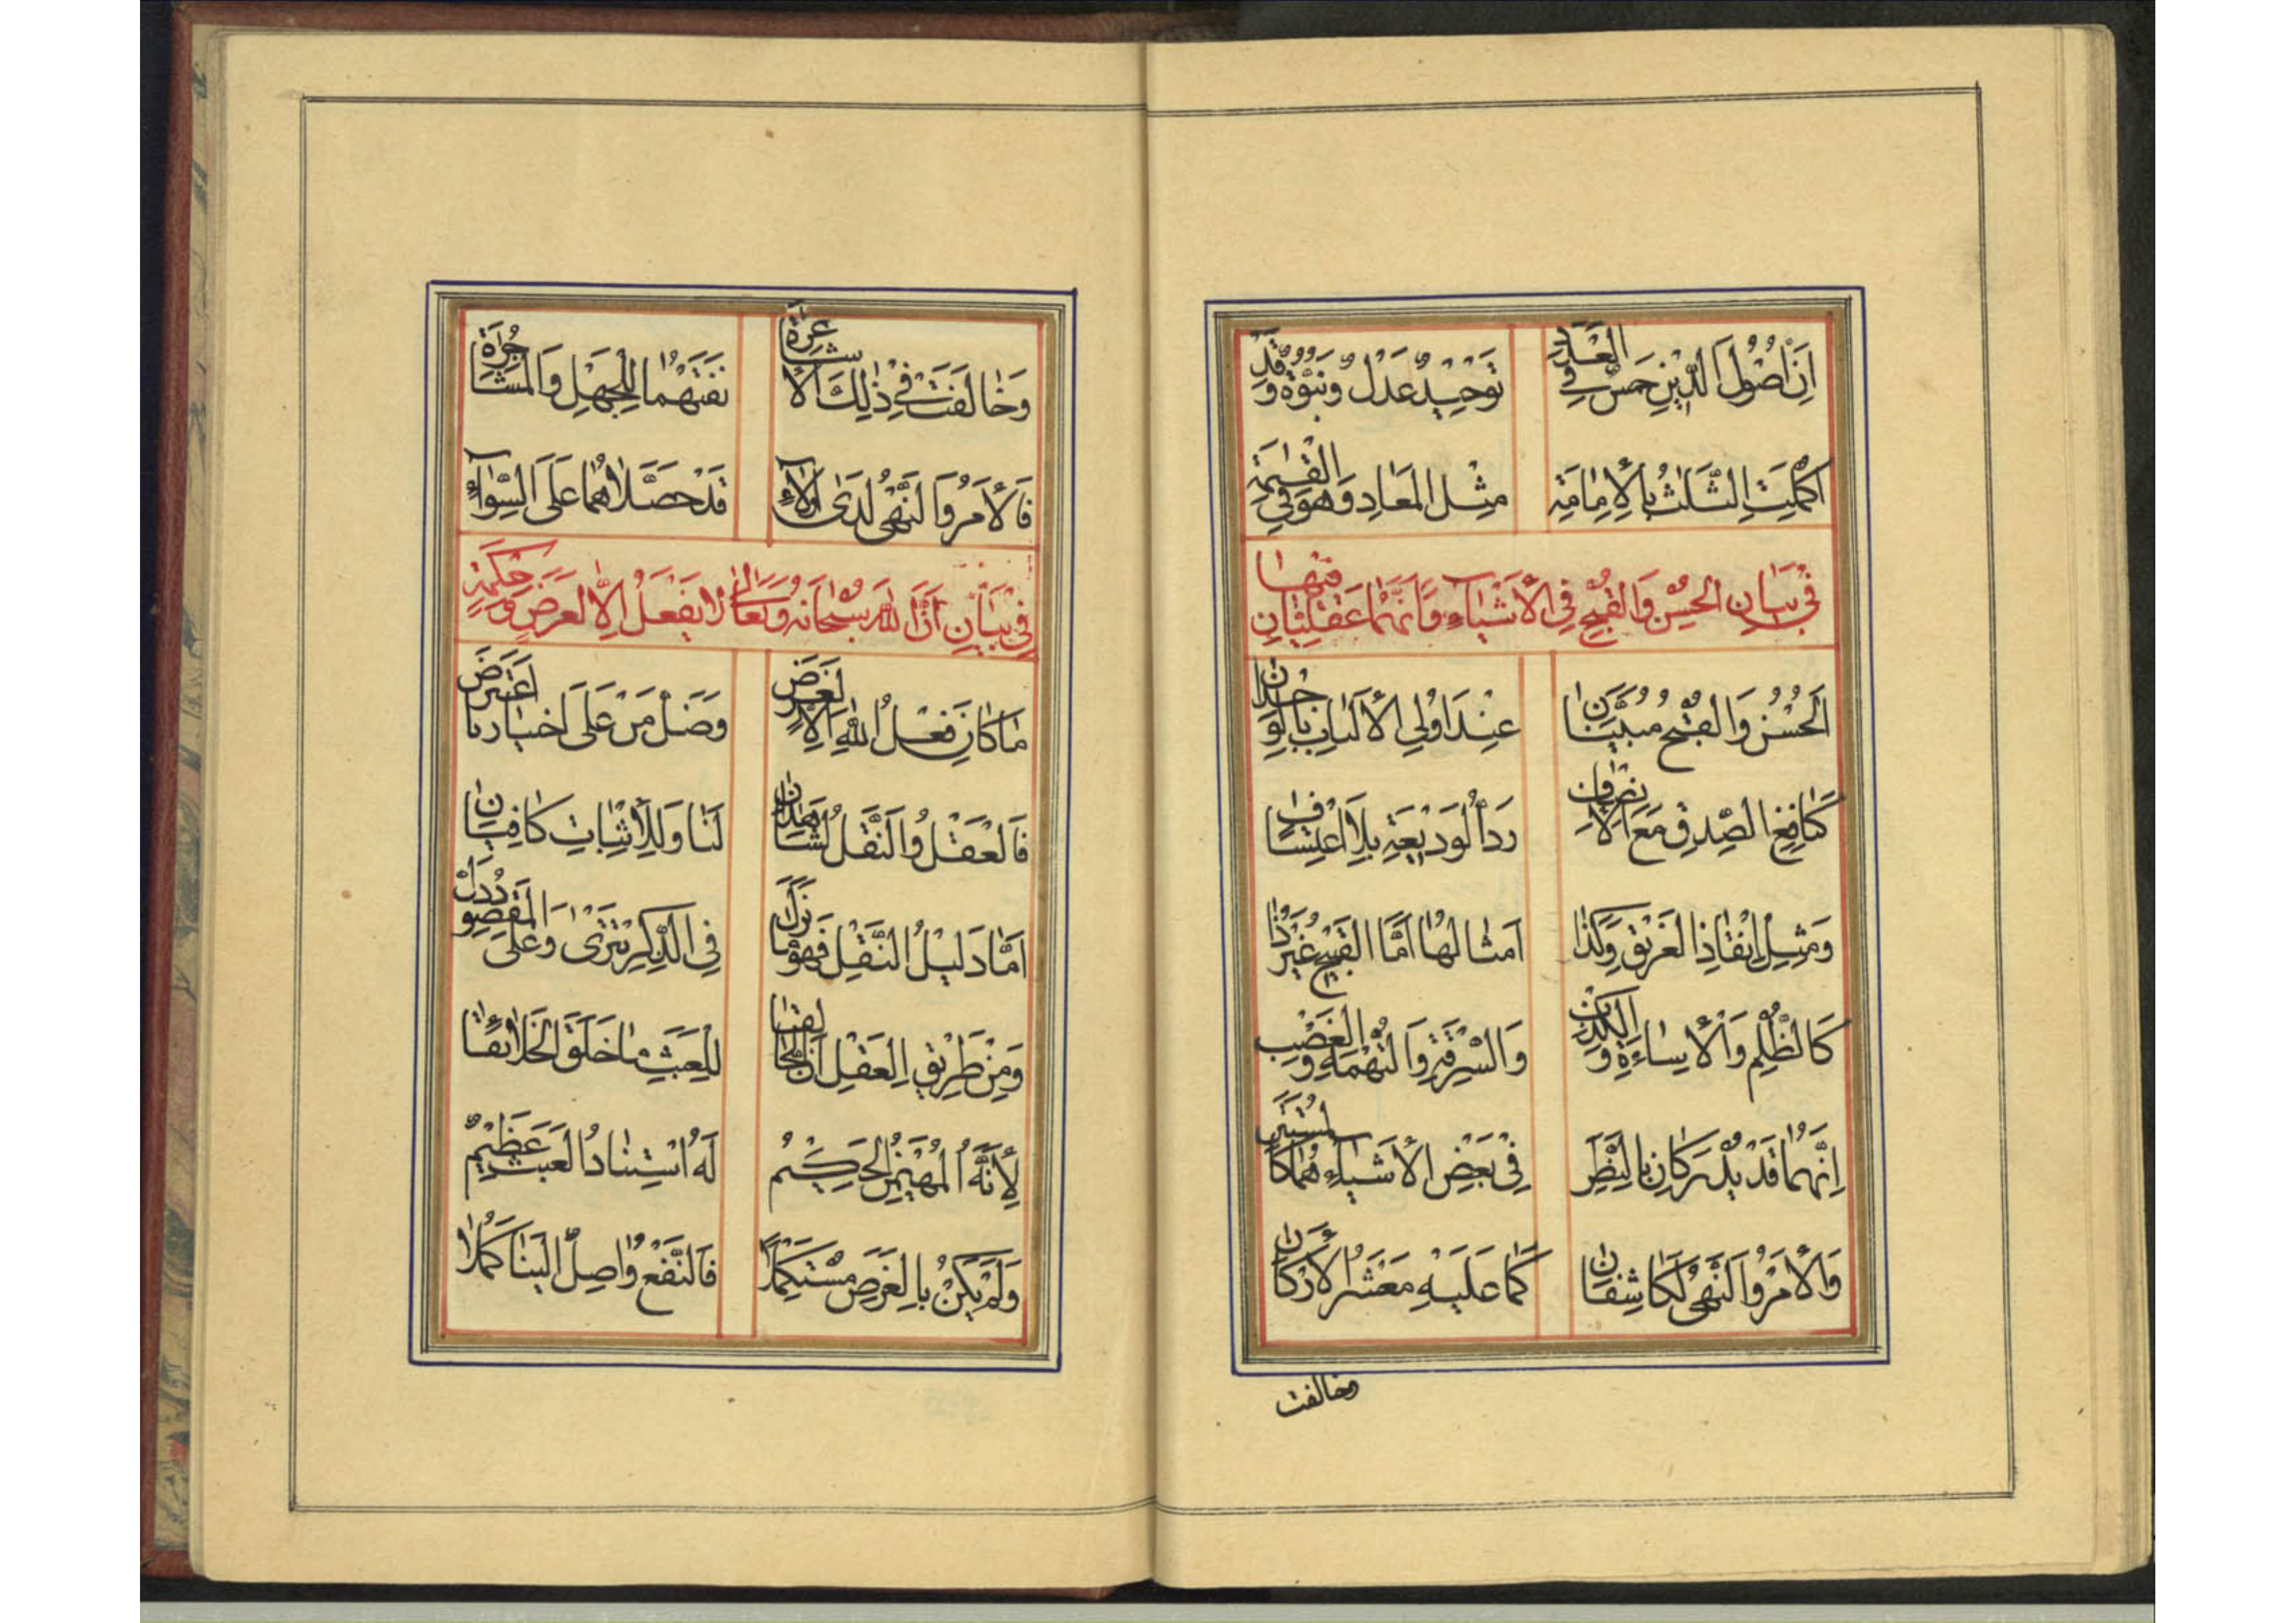 إِنَّ أُصُولَ الدِّينِ خَمْسٌ فِي الْعَدَدِ تَوْحِيدٌ عَدْلٌ وَنُبُوَّةٌ وَقَدْ
أُكْمِلَتِ الثَّلَاثُ بِالْإِمَامَةِ مِثْلِ الْمَعَادِ وَهُوَ فِي الْقِيٰمَةِ
فِي بَيَانِ الْحُسْنِ وَالْقُبْحِ فِي الْأَشْيَاءِ وَأَنَّهُمَا عَقْلِيَّانِ فِيهَا
الْحُسْنُ وَالْقُبْحُ مُبَيَّنَانِ عِنْدَ أُولِي الْأَلْبَابِ بِالْوِجْدَانِ
كَنَافِعِ الصِّدْقِ مَعَ الْإِنْصَافِ رَدُّ الْوَدِيعَةِ بِلَا اعْتِسَافِ
وَمِثْلِ إِنْقَاذِ الْغَرِيقِ وَكَذَا أَمْثَالُهَا أَمَّا الْقَبِيحُ غَيْرُ ذَا
كَالظُّلْمِ وَالْإِسَاءَةِ وَالْكِذْبِ وَالسَّرِقَةِ وَالتُّهْمَةِ وَالْغَصْبِ
إِنَّهُمَا قَدْ يُدْرَكَانِ بِالنَّظَرِ فِي بَعْضِ الْأَشْيَاءِ هُمَا كَالْمُسْتَتَرِ
وَالْأَمْرُ وَالنَّهْيُ لَكَاشِفَانِ كَمَا عَلَيْهِ مَعْشَرُ الْأَرْكَانِ
وخالفت
وَخَالَفَتْ فِي ذٰلِكَ الْأَشَاعِرَةُ نَفَتْهُمَا لِلْجَهْلِ وَالْمُشَاجَرَةِ
فَالْأَمْرُ وَالنَّهْيُ لَدَى أُولَاءِ قَدْ حَصَّلَاهُمَا عَلَى السَّوَاءِ
فِي بَيَانِ أَنَّ اللهَ سُبْحَانَهُ وَتَعَالَى لَا يَفْعَلُ إِلَّا لِغَرَضٍ وَحِكْمَةٍ
مَا كَانَ فِعْلُ اللهِ إِلَّا لِغَرَضٍ وَضَلَّ مَنْ عَلَى اخْتِيَارِنَا اعْتَرَضَ
فَالْعَقْلُ وَالنَّقْلُ لَشَاهِدَانِ لَنَا وَلِلْإِثْبَاتِ كَافِيَانِ
أَمَّا دَلِيلُ النَّقْلِ فَهْوَ مَا نَزَلَ فِي الذِّكْرِ تَتْرَى وَعَلَى الْمَقْصُودِ دَلَّ
وَمِنْ طَرِيقِ الْعَقْلِ أَنَّ الْخَالِقَا لِلْعَبَثِ مَا خَلَقَ الْخَلَائِقَا
لِأَنَّهُ الْمُهَيْمِنُ الْحَكِيمُ لَهُ اسْتِنَادُ الْعَبَثِ عَظِيمٌ
وَلَمْ يَكُنْ بِالْغَرَضِ مُسْتَكْمِلًا فَالنَّفْعُ وَاصِلٌ إِلَيْنَا كَمُلَا